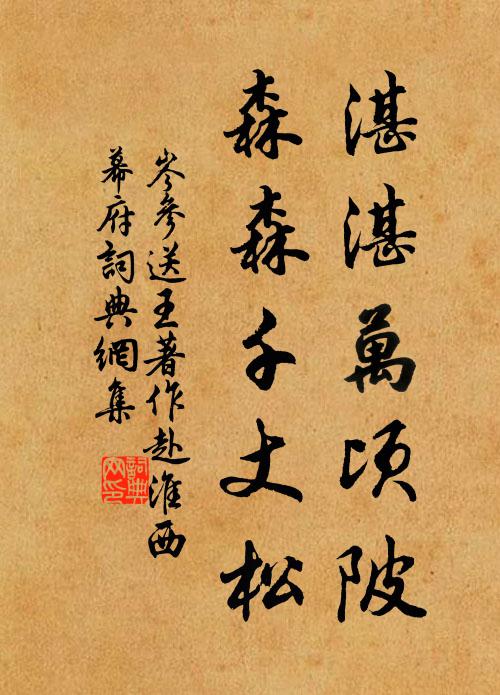 湛湛萬頃陂
森森千丈松
岑參送王著作赴淮西
幕府詞典網集
詞典
网印